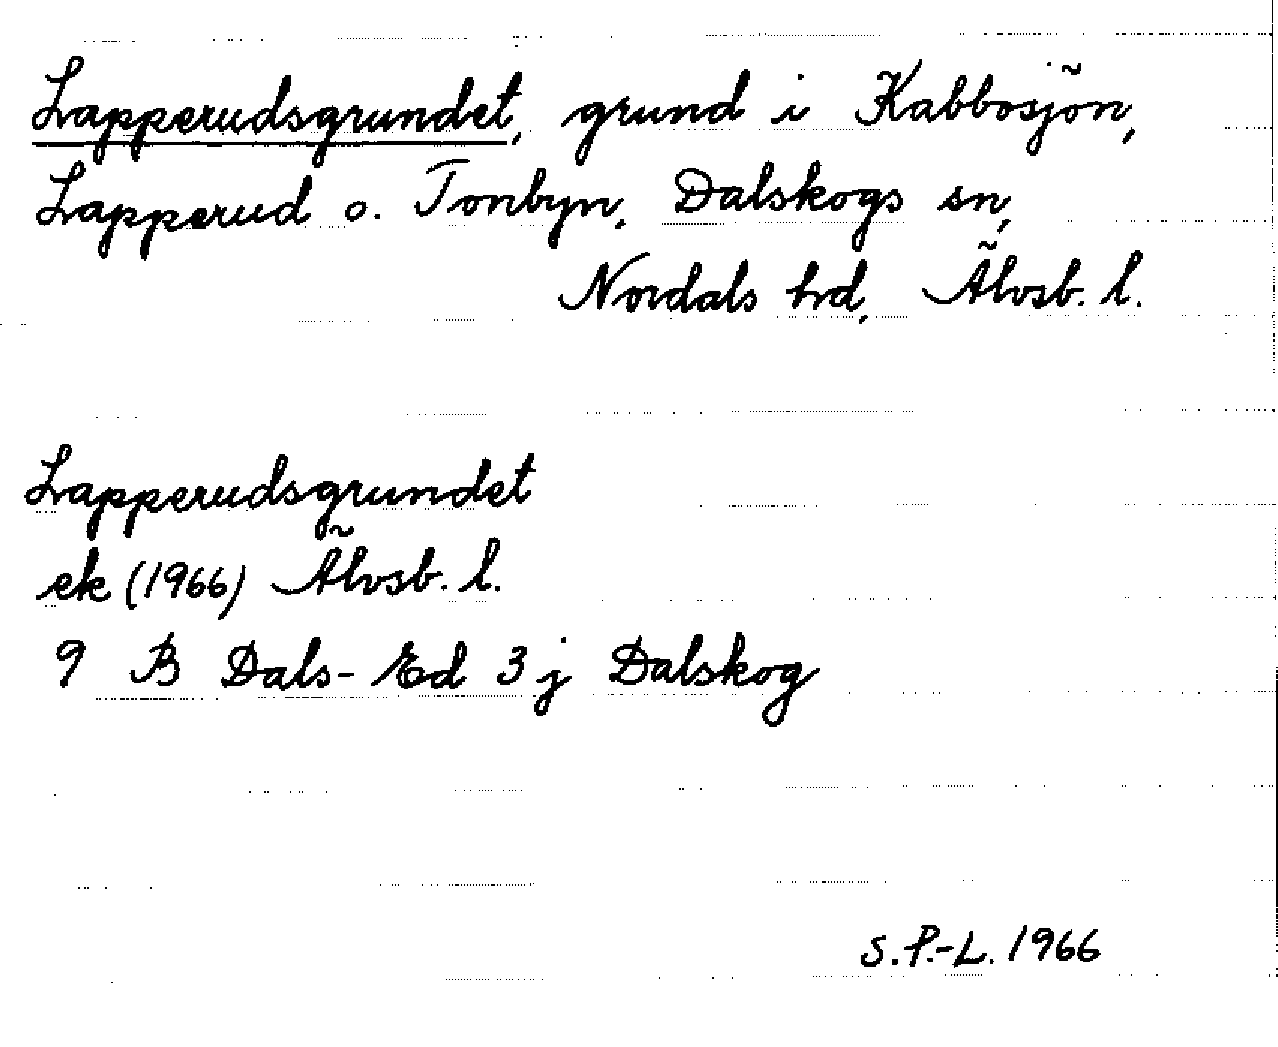 Lapperudsgrundet, grund i Kabbosjön,
Lapperud o. Tonbyn, Dalskogs sn,
Nordals hrd, Älvsb. l.
Lapperudsgrundet
ek (1966) Älvsb. l.
9 B Dals-Ed 3j Dalskog
S.P.-L. 1966